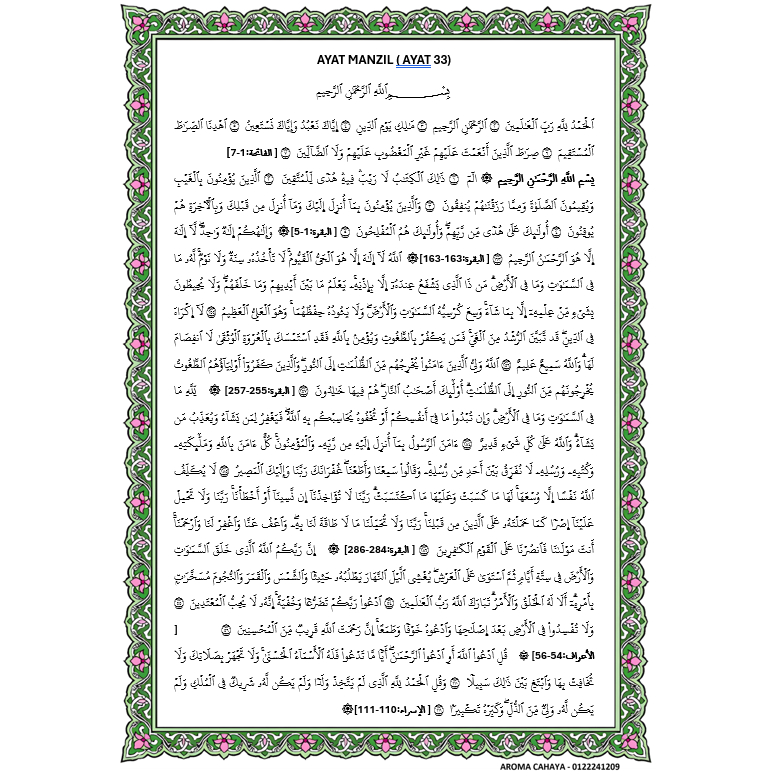 AYAT MANZIL ( AYAT 33)
بِسْمِ ٱللَّهِ ٱلرَّحْمَٰنِ ٱلرَّحِيمِ
ٱلْحَمْدُ لِلَّهِ رَبِّ ٱلْعَٰلَمِينَ ۝ ٱلرَّحْمَٰنِ ٱلرَّحِيمِ ۝ مَٰلِكِ يَوْمِ ٱلدِّينِ ۝ إِيَّاكَ نَعْبُدُ وَإِيَّاكَ نَسْتَعِينُ ۝ ٱهْدِنَا ٱلصِّرَٰطَ
ٱلْمُسْتَقِيمَ ۝ صِرَٰطَ ٱلَّذِينَ أَنْعَمْتَ عَلَيْهِمْ غَيْرِ ٱلْمَغْضُوبِ عَلَيْهِمْ وَلَا ٱلضَّآلِّينَ ۝ [الفاتحة:1-7]
بِسْمِ اللَّهِ الرَّحْمَٰنِ الرَّحِيمِ الٓمٓ ۝ ذَٰلِكَ ٱلْكِتَٰبُ لَا رَيْبَۛ فِيهِۛ هُدًى لِّلْمُتَّقِينَ ۝ ٱلَّذِينَ يُؤْمِنُونَ بِٱلْغَيْبِ
وَيُقِيمُونَ ٱلصَّلَوٰةَ وَمِمَّا رَزَقْنَٰهُمْ يُنفِقُونَ ۝ وَٱلَّذِينَ يُؤْمِنُونَ بِمَآ أُنزِلَ إِلَيْكَ وَمَآ أُنزِلَ مِن قَبْلِكَ وَبِٱلْءَاخِرَةِ هُمْ
يُوقِنُونَ ۝ أُو۟لَٰٓئِكَ عَلَىٰ هُدًى مِّن رَّبِّهِمْۖ وَأُو۟لَٰٓئِكَ هُمُ ٱلْمُفْلِحُونَ ۝ [البقرة:1-5] وَإِلَٰهُكُمْ إِلَٰهٌ وَٰحِدٌۖ لَّآ إِلَٰهَ
إِلَّا هُوَ ٱلرَّحْمَٰنُ ٱلرَّحِيمُ ۝ [البقرة:163-163] ٱللَّهُ لَآ إِلَٰهَ إِلَّا هُوَ ٱلْحَىُّ ٱلْقَيُّومُۚ لَا تَأْخُذُهُۥ سِنَةٌ وَلَا نَوْمٌۚ لَّهُۥ مَا
فِى ٱلسَّمَٰوَٰتِ وَمَا فِى ٱلْأَرْضِۗ مَن ذَا ٱلَّذِى يَشْفَعُ عِندَهُۥٓ إِلَّا بِإِذْنِهِۦۚ يَعْلَمُ مَا بَيْنَ أَيْدِيهِمْ وَمَا خَلْفَهُمْۖ وَلَا يُحِيطُونَ
بِشَىْءٍ مِّنْ عِلْمِهِۦٓ إِلَّا بِمَا شَآءَۚ وَسِعَ كُرْسِيُّهُ ٱلسَّمَٰوَٰتِ وَٱلْأَرْضَۖ وَلَا يَـُٔودُهُۥ حِفْظُهُمَاۚ وَهُوَ ٱلْعَلِىُّ ٱلْعَظِيمُ ۝ لَآ إِكْرَاهَ
فِى ٱلدِّينِۖ قَد تَّبَيَّنَ ٱلرُّشْدُ مِنَ ٱلْغَىِّۚ فَمَن يَكْفُرْ بِٱلطَّٰغُوتِ وَيُؤْمِنۢ بِٱللَّهِ فَقَدِ ٱسْتَمْسَكَ بِٱلْعُرْوَةِ ٱلْوُثْقَىٰ لَا ٱنفِصَامَ
لَهَاۗ وَٱللَّهُ سَمِيعٌ عَلِيمٌ ۝ ٱللَّهُ وَلِىُّ ٱلَّذِينَ ءَامَنُوا۟ يُخْرِجُهُم مِّنَ ٱلظُّلُمَٰتِ إِلَى ٱلنُّورِۖ وَٱلَّذِينَ كَفَرُوٓا۟ أَوْلِيَآؤُهُمُ ٱلطَّٰغُوتُ
يُخْرِجُونَهُم مِّنَ ٱلنُّورِ إِلَى ٱلظُّلُمَٰتِۗ أُو۟لَٰٓئِكَ أَصْحَٰبُ ٱلنَّارِۖ هُمْ فِيهَا خَٰلِدُونَ ۝ [البقرة:255-257] لِّلَّهِ مَا
فِى ٱلسَّمَٰوَٰتِ وَمَا فِى ٱلْأَرْضِۗ وَإِن تُبْدُوا۟ مَا فِىٓ أَنفُسِكُمْ أَوْ تُخْفُوهُ يُحَاسِبْكُم بِهِ ٱللَّهُۖ فَيَغْفِرُ لِمَن يَشَآءُ وَيُعَذِّبُ مَن
يَشَآءُۗ وَٱللَّهُ عَلَىٰ كُلِّ شَىْءٍ قَدِيرٌ ۝ ءَامَنَ ٱلرَّسُولُ بِمَآ أُنزِلَ إِلَيْهِ مِن رَّبِّهِۦ وَٱلْمُؤْمِنُونَۚ كُلٌّ ءَامَنَ بِٱللَّهِ وَمَلَٰٓئِكَتِهِۦ
وَكُتُبِهِۦ وَرُسُلِهِۦ لَا نُفَرِّقُ بَيْنَ أَحَدٍ مِّن رُّسُلِهِۦۚ وَقَالُوا۟ سَمِعْنَا وَأَطَعْنَاۖ غُفْرَانَكَ رَبَّنَا وَإِلَيْكَ ٱلْمَصِيرُ ۝ لَا يُكَلِّفُ
ٱللَّهُ نَفْسًا إِلَّا وُسْعَهَاۚ لَهَا مَا كَسَبَتْ وَعَلَيْهَا مَا ٱكْتَسَبَتْۗ رَبَّنَا لَا تُؤَاخِذْنَآ إِن نَّسِينَآ أَوْ أَخْطَأْنَاۚ رَبَّنَا وَلَا تَحْمِلْ
عَلَيْنَآ إِصْرًا كَمَا حَمَلْتَهُۥ عَلَى ٱلَّذِينَ مِن قَبْلِنَاۚ رَبَّنَا وَلَا تُحَمِّلْنَا مَا لَا طَاقَةَ لَنَا بِهِۦۖ وَٱعْفُ عَنَّا وَٱغْفِرْ لَنَا وَٱرْحَمْنَآۚ
أَنتَ مَوْلَىٰنَا فَٱنصُرْنَا عَلَى ٱلْقَوْمِ ٱلْكَٰفِرِينَ ۝ [البقرة:284-286] إِنَّ رَبَّكُمُ ٱللَّهُ ٱلَّذِى خَلَقَ ٱلسَّمَٰوَٰتِ
وَٱلْأَرْضَ فِى سِتَّةِ أَيَّامٍ ثُمَّ ٱسْتَوَىٰ عَلَى ٱلْعَرْشِۖ يُغْشِى ٱلَّيْلَ ٱلنَّهَارَ يَطْلُبُهُۥ حَثِيثًا وَٱلشَّمْسَ وَٱلْقَمَرَ وَٱلنُّجُومَ مُسَخَّرَٰتٍۭ
بِأَمْرِهِۦٓۗ أَلَا لَهُ ٱلْخَلْقُ وَٱلْأَمْرُۗ تَبَارَكَ ٱللَّهُ رَبُّ ٱلْعَٰلَمِينَ ۝ ٱدْعُوا۟ رَبَّكُمْ تَضَرُّعًا وَخُفْيَةًۚ إِنَّهُۥ لَا يُحِبُّ ٱلْمُعْتَدِينَ ۝
وَلَا تُفْسِدُوا۟ فِى ٱلْأَرْضِ بَعْدَ إِصْلَٰحِهَا وَٱدْعُوهُ خَوْفًا وَطَمَعًاۚ إِنَّ رَحْمَتَ ٱللَّهِ قَرِيبٌ مِّنَ ٱلْمُحْسِنِينَ ۝ [
الأعراف:54-56] قُلِ ٱدْعُوا۟ ٱللَّهَ أَوِ ٱدْعُوا۟ ٱلرَّحْمَٰنَۖ أَيًّا مَّا تَدْعُوا۟ فَلَهُ ٱلْأَسْمَآءُ ٱلْحُسْنَىٰۚ وَلَا تَجْهَرْ بِصَلَاتِكَ وَلَا
تُخَافِتْ بِهَا وَٱبْتَغِ بَيْنَ ذَٰلِكَ سَبِيلًا ۝ وَقُلِ ٱلْحَمْدُ لِلَّهِ ٱلَّذِى لَمْ يَتَّخِذْ وَلَدًا وَلَمْ يَكُن لَّهُۥ شَرِيكٌ فِى ٱلْمُلْكِ وَلَمْ
يَكُن لَّهُۥ وَلِىٌّ مِّنَ ٱلذُّلِّۖ وَكَبِّرْهُ تَكْبِيرًۢا ۝ [الإسراء:110-111]
AROMA CAHAYA - 0122241209